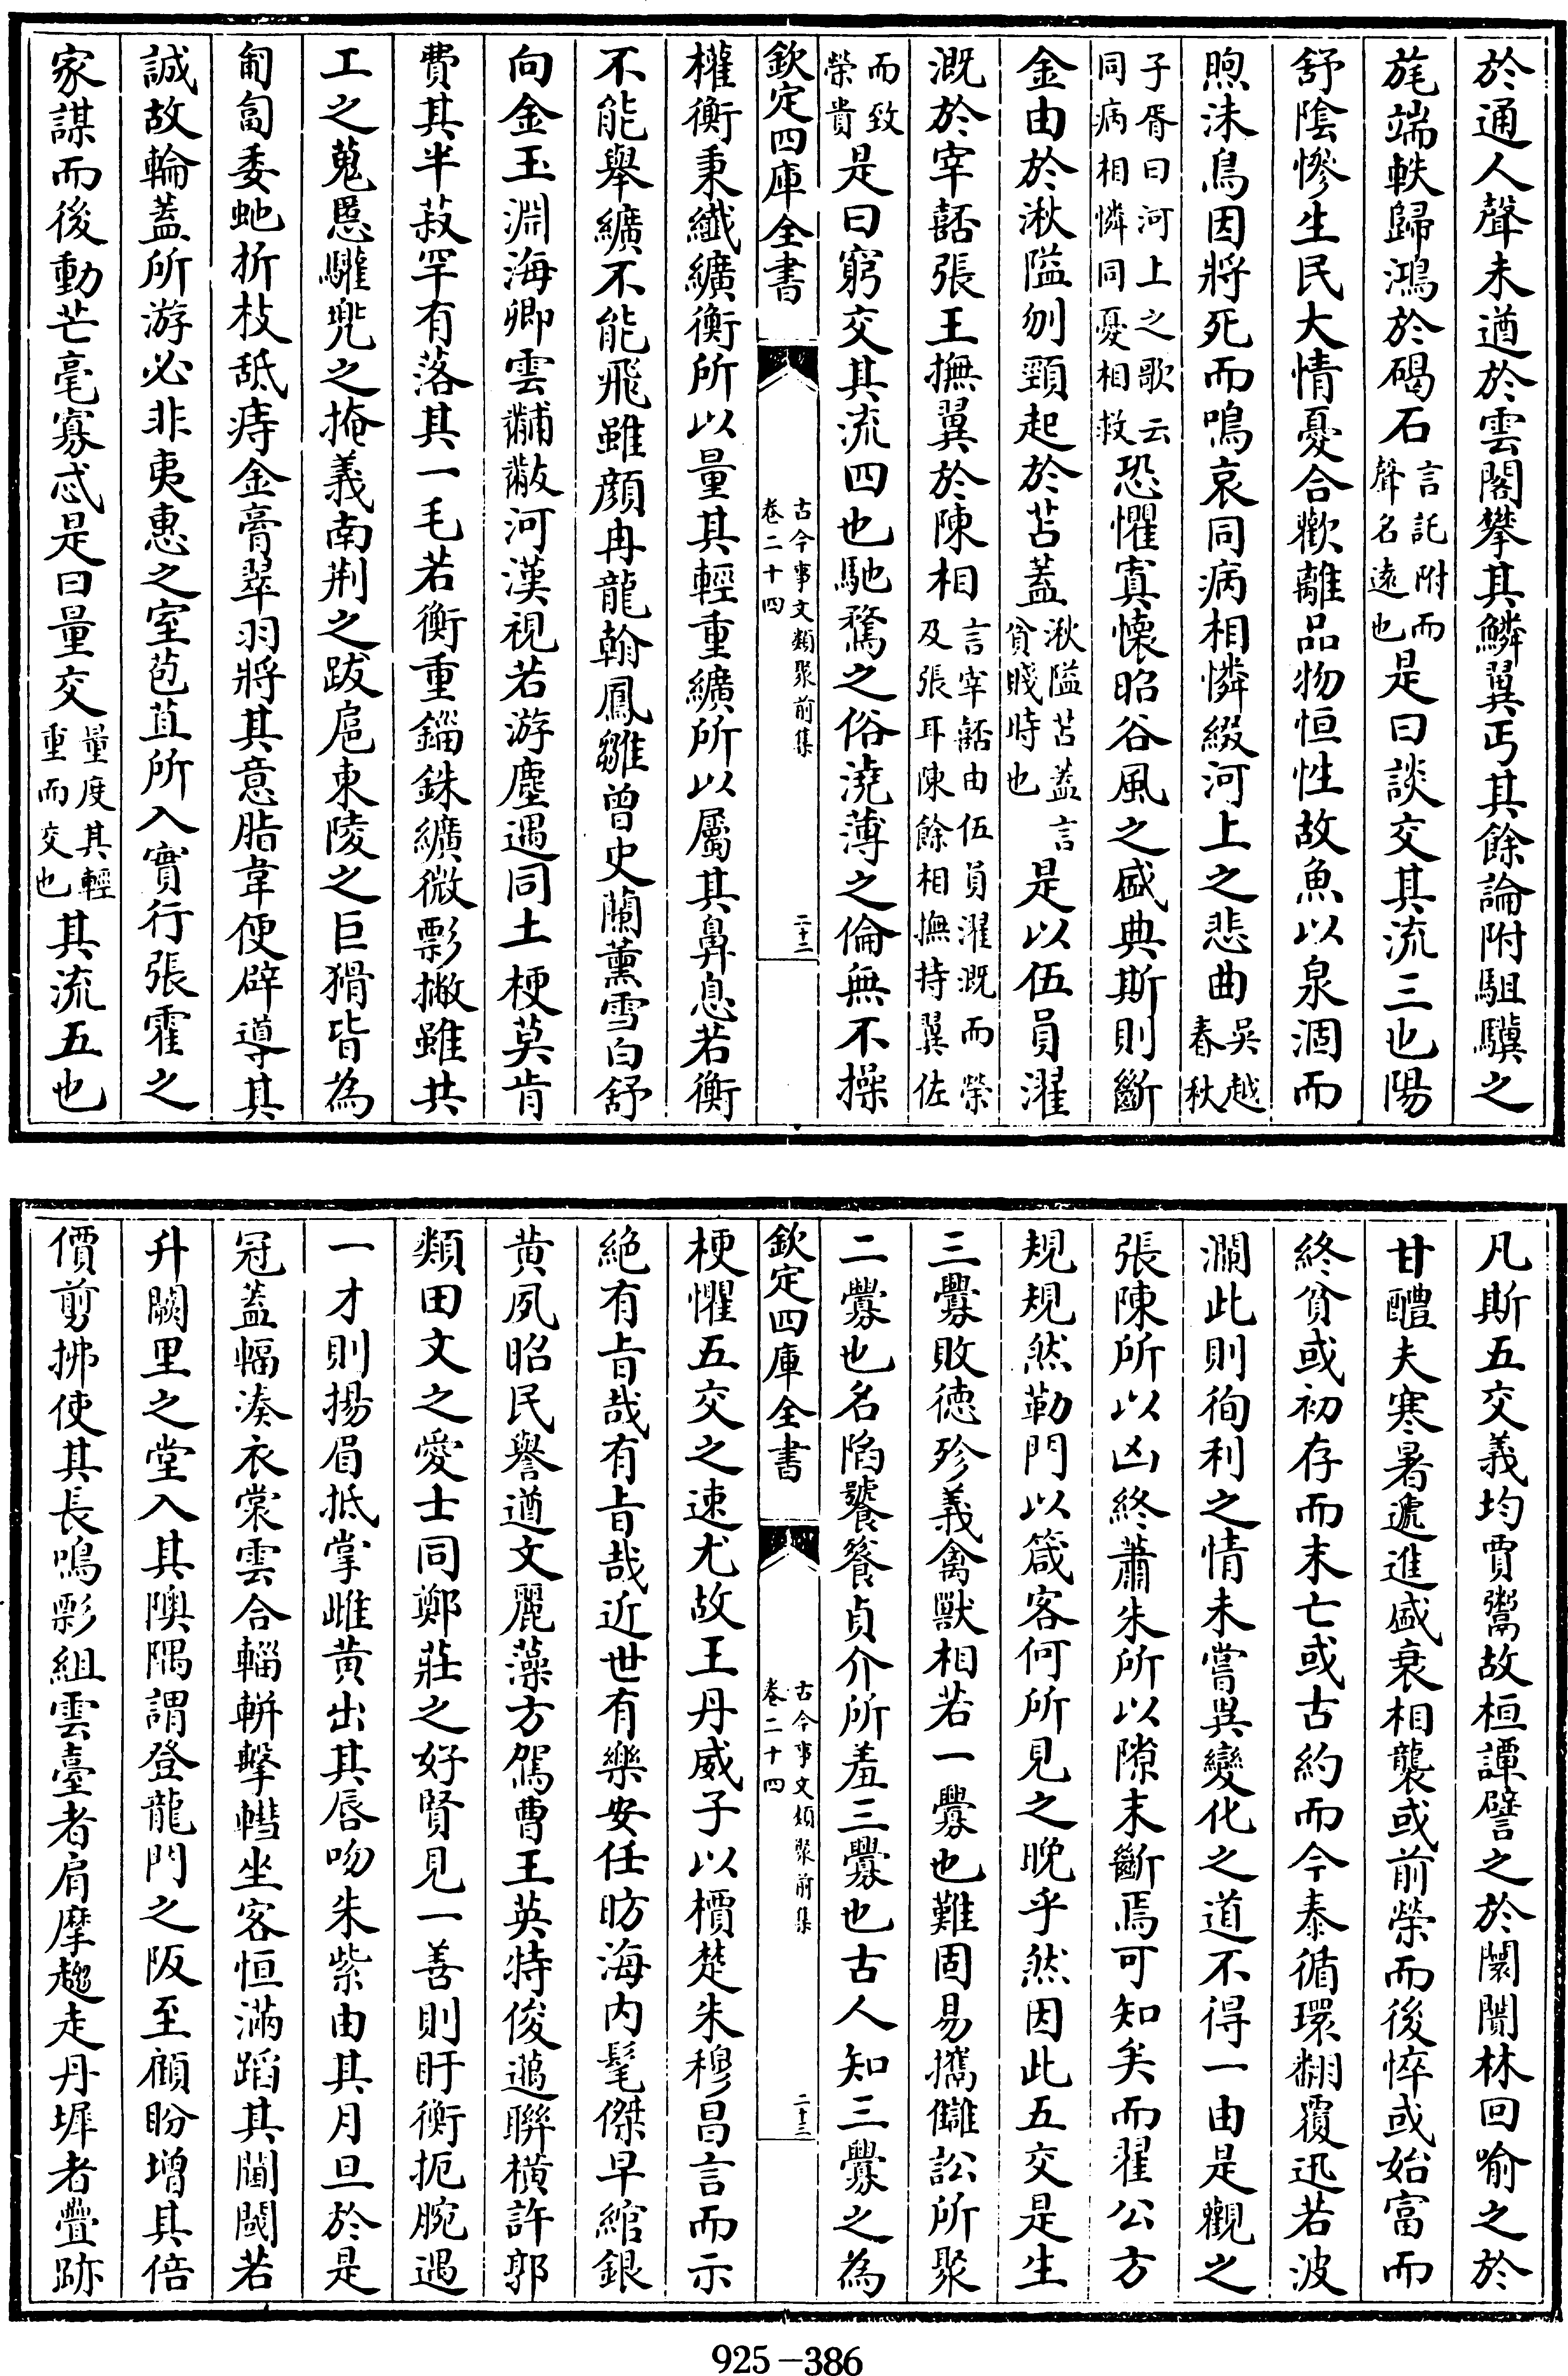 於通人聲未遒於雲閣攀其鱗翼丐其餘論附駔驥之
旄端軼歸鴻於碣石言託附而聲名遠也是曰談交其流三也陽
舒陰慘生民大情憂合歡離品物恒性故魚以泉涸而
喣沬鳥因將死而鳴哀同病相憐綴河上之悲曲吳越春秋
子胥曰河上之歌云同病相憐同憂相救恐懼寘懷昭谷風之盛典斯則斷
金由於湫隘刎頸起於苫蓋湫隘苫蓋言貧賤時也是以伍員濯
溉於宰嚭張王撫翼於陳相言宰嚭由伍員濯溉而榮及張耳陳餘相撫持翼佐
而致榮貴是曰窮交其流四也馳騖之俗澆薄之倫無不操
欽定四庫全書
古今事文類聚前集
卷二十四
二十二
權衡秉纖纊衡所以量其輕重纊所以屬其鼻息若衡
不能舉纊不能飛雖顏冉龍翰鳳雛曾史蘭薰雪白舒
向金玉淵海卿雲黼黻河漢視若游塵遇同土梗莫肯
費其半菽罕有落其一毛若衡重錙銖纊微彯撇雖共
工之蒐慝驩兜之掩義南荆之跋扈東陵之巨猾皆為
匍匐委虵折枝舐痔金膏翠羽將其意脂韋便辟導其
誠故輪蓋所游必非夷惠之室苞苴所入實行張霍之
家謀而後動芒毫寡忒是曰量交量度其輕重而交也其流五也
凡斯五交義均賈鬻故桓譚譬之於闤闠林回喻之於
甘醴夫寒暑遞進盛衰相襲或前榮而後悴或始富而
終貧或初存而末亡或古約而今泰循環翻覆迅若波
瀾此則徇利之情未嘗異變化之道不得一由是觀之
張陳所以凶終蕭朱所以隙末斷焉可知矣而翟公方
規規然勒門以箴客何所見之晚乎然因此五交是生
三釁敗徳殄義禽獸相若一釁也難固易攜讎訟所聚
二釁也名陷饕餮貞介所羞三釁也古人知三釁之為
欽定四庫全書
古今事文類聚前集
卷二十四
二十三
梗懼五交之速尤故王丹威子以檟楚朱穆昌言而示
絶有㫖哉有㫖哉近世有樂安任昉海内髦傑早綰銀
黄夙昭民譽遒文麗藻方駕曹王英特俊邁聯横許郭
類田文之愛士同鄭莊之好賢見一善則盱衡扼腕遇
一才則揚眉抵掌雌黄出其唇吻朱紫由其月旦於是
冠蓋輻湊衣裳雲合輜軿擊轊坐客恒滿蹈其閫閾若
升闕里之堂入其隩隅謂登龍門之阪至顧盼增其倍
價剪拂使其長鳴彯組雲臺者肩摩趨走丹墀者疊跡
925-386